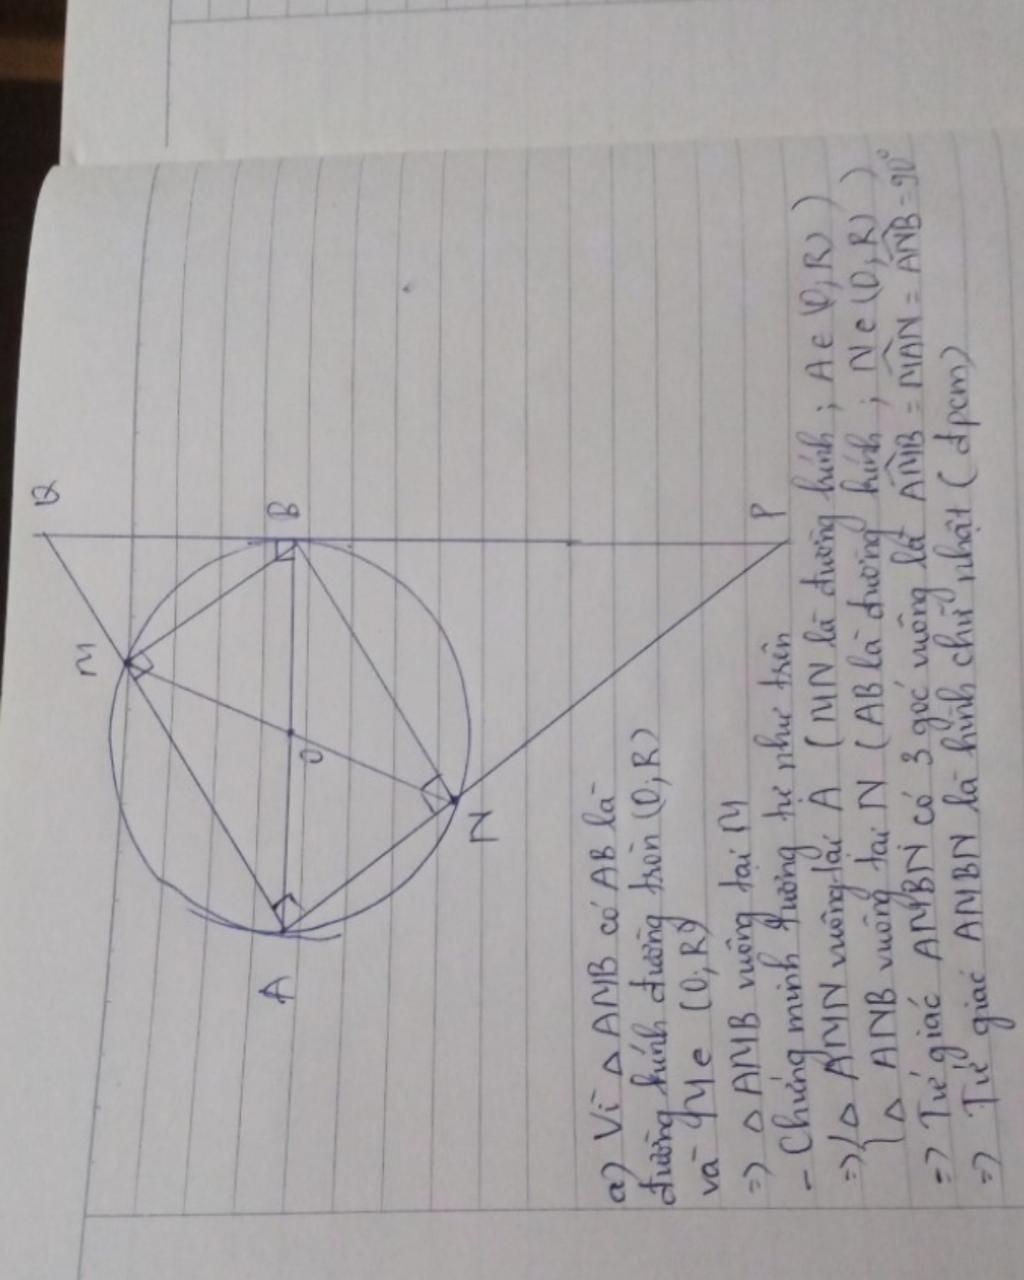 M
Q
A
O
B
N
P
a) Vì △ AMB có AB là
đường kính đường tròn (O; R)
và M ∈ (O; R)
=) △ AMB vuông tại M
- Chứng minh tương tự như trên
=) { △ AMN vuông tại A (MN là đường kính ; A ∈ (O; R) )
△ ANB vuông tại N (AB là đường kính ; N ∈ (O; R) )
=) Tứ giác AMBN có 3 góc vuông là AMB = MAN = ANB = 90°
=) Tứ giác AMBN là hình chữ nhật (đpcm)